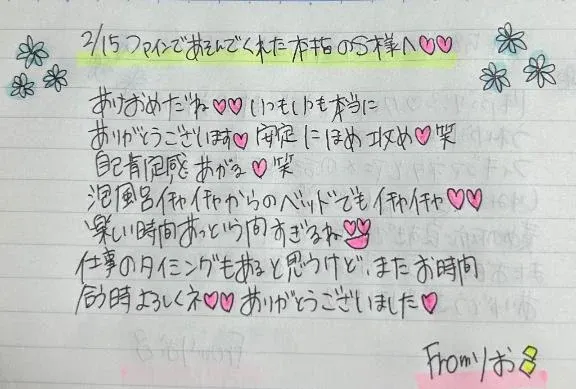 2/15 ファインであそんでくれた本指のS様へ♡♡
あけおめだね♡♡いつもいつも本当に
ありがとうございます♡安定にほめ攻め♡笑
自己肯定感あがる♡笑
泡風呂イチャイチャからのベッドでもイチャイチャ♡♡
楽しい時間あっという間すぎるね
仕事のタイミングもあると思うけど、またお時間
合う時よろしくネ♡♡ありがとうございました♡
Fromりお